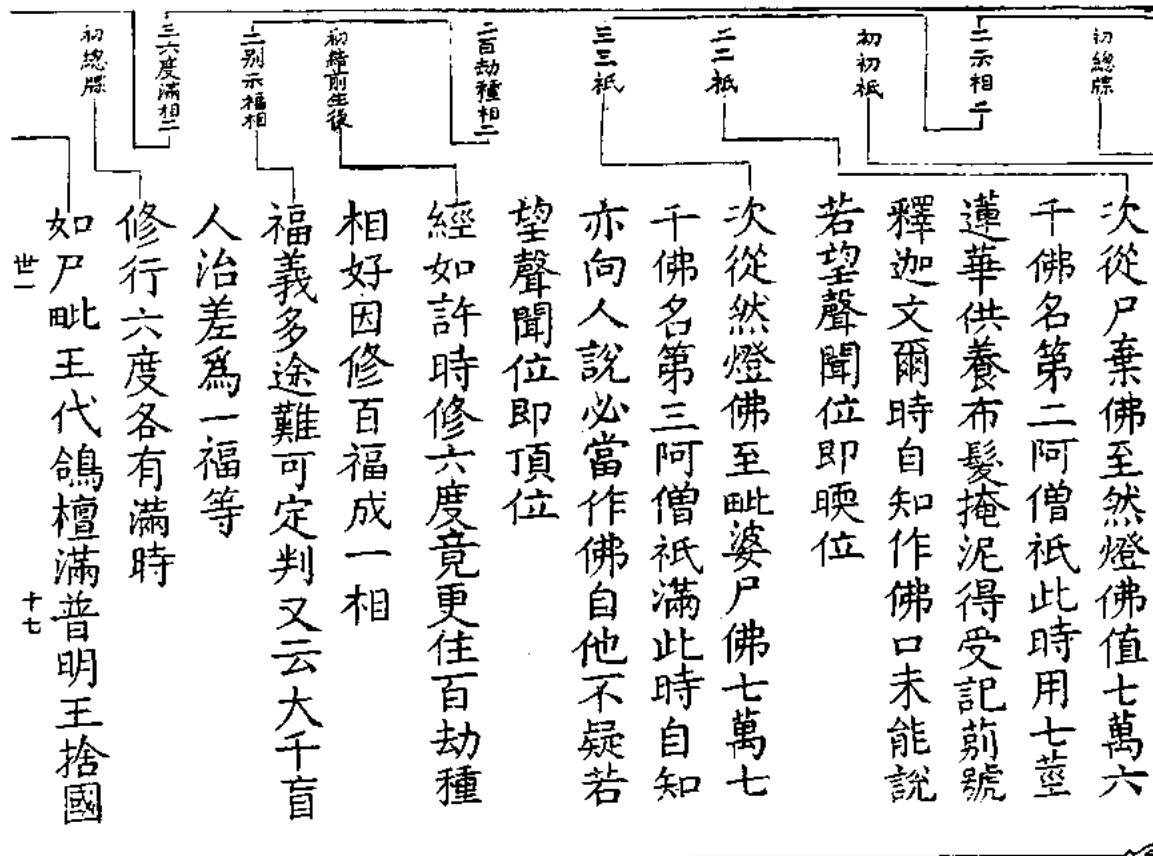 初總牒
二示相二
初初祇
二二祇
三三祇
二百劫種相二
初結前生後
二別示福相
三六度滿相二
初總牒
次從尸棄佛至然燈佛值七萬六
千佛名第二阿僧祇此時用七莖
蓮華供養布髮掩泥得受記莂號
釋迦文爾時自知作佛口未能說
若望聲聞位即暝位
次從然燈佛至毗婆尸佛七萬七
千佛名第三阿僧祇滿此時自知
亦向人說必當作佛自他不疑若
望聲聞位即頂位
經如許時修六度竟更住百劫種
相好因修百福成一相
福義多途難可定判又云大千盲
人治差爲一福等
修行六度各有滿時
如尸毗王代鴿檀滿普明王捨國
世一
十七